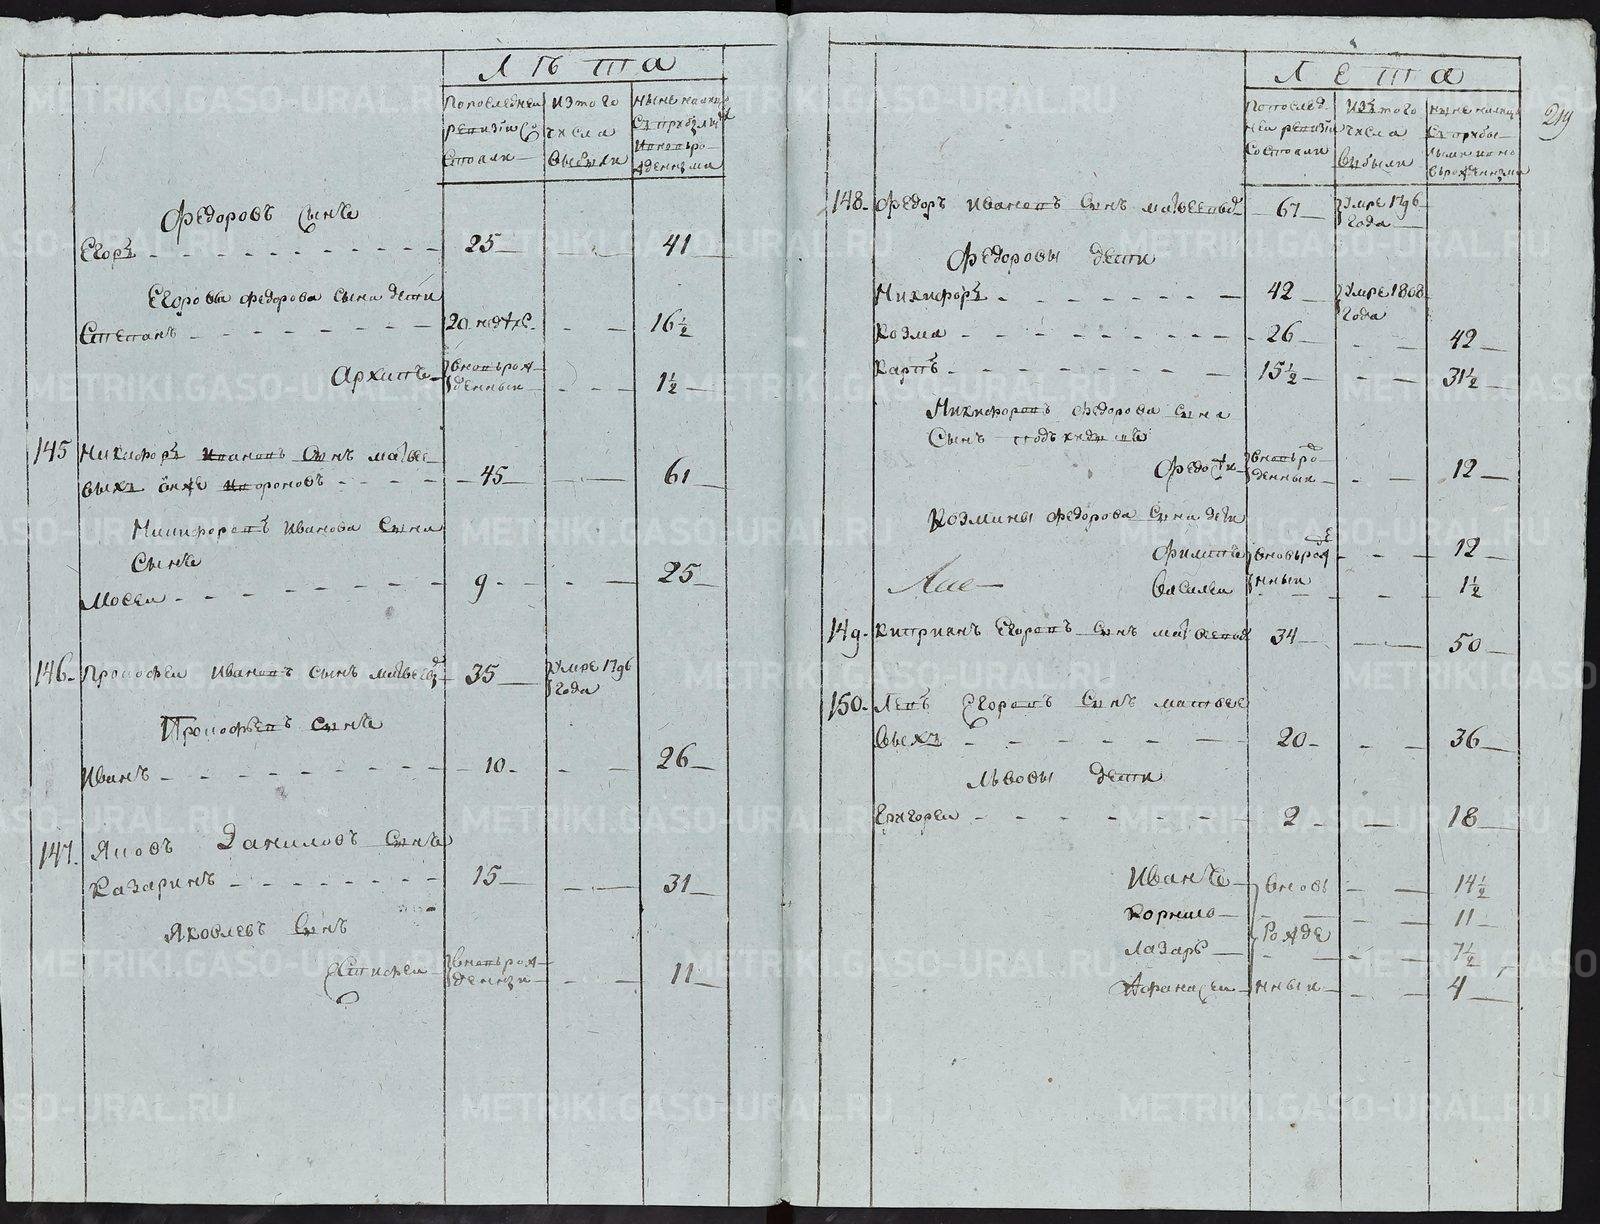 Лѣта
По последней ревизiи состояли
Из того числа выбыли
Ныне налицо с прибылыми и новорожденными
Федоровъ сынъ
Егоръ 25 41
Егоровы Федорова сына дети
Степанъ 20 недѣл. 16½
Архипъ вновьрожденный 1½
145 Никифоръ Ивановъ сынъ матвее-
выхъ онже 45 61
Никифоровъ Иванова сына
Сынъ
Мосеи 9 25
146. Прокофеи Ивановъ сынъ матвеевъ 35 умре 1796 года
Прокофьевъ сынъ
Иванъ 10 26
147. Яковъ Даниловъ сынъ
Казаринъ 15 31
Яковлевъ сынъ
вновьрожденный 11
219
Лета
По последней ревизiи состояли
Изъ того числа выбыли
ныне налицо с прибылыми и новорожденными
148. Федоръ Ивановъ сынъ матвеевъ 67 умре 1796 года
Федоровы дети
Никифоръ 42 умре 1808 года
Козма 26 42
Карпъ 15½ 31½
Никифоровъ Федорова сына
Сынъ
вновьрожденный 12
Козмины Федорова сына дети
Филипъ вновьрожде 12
Василеи нныи 1½
149. Киприанъ Егоровъ сынъ матвеевых 34 50
150. Левъ Егоровъ сынъ матвее
выхъ 20 36
Львовы дети
Григореи 2 18
Иванъ вновь 14½
Корнило 11
Лазарь рожде 7½
Афанасеи нныи 4
METRIKI.GASO-URAL.RU